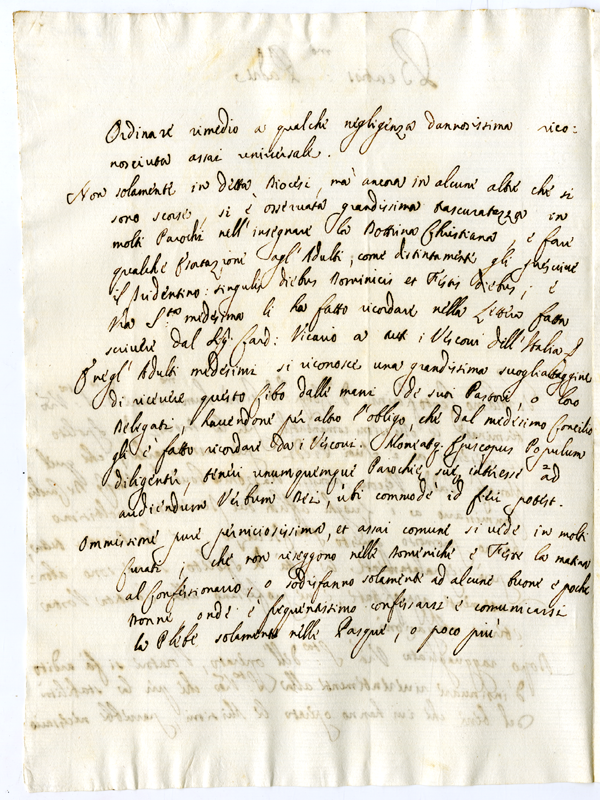 Ordinare rimedio a qualche negligenza dannosissima rico:
nosciuta assai universale.
Non solamente in detta Diocesi, mà ancora in alcune altre che si
sono scorse, si è osservata grandissima trascuratezza in
molti Parochi nell'insegnare la Dottrina Christiana, e fare
qualche esortazione agl'Adulti, come distintamente gli prescrive
il Tridentino: singulis diebus Dominicis et Festis diebus; e
Vra S.tà medesima li ha fatto ricordare nella Lettera fatta
scrivere dal Sig. Card: Vicario a tutt'i Vescovi dell'Italia.
E negl'Adulti medesimi si riconosce una grandissima svogliataggine
di ricevere questo Cibo dalle mani de suoi Pastori, o loro
Delegati, havendone per altro l'obligo, che dal medesimo Concilio
gli è fatto ricordare da i Vescovi. Moneatq. Episcopus Populum
diligenter, teneri unumquemque Parochiæ suæ interesse ad
audiendum Verbum Dei, ubi commodè id fieri potest.
Ommissione pure perniciosissima, et assai comune si vede in molti
Curati, che non riseggono nelle Domeniche e Feste la matina
al Confessionario, o sodisfanno solamente ad alcune buone e poche
Donne, onde è frequentissimo confessarsi e comunicarsi
la Plebe solamente nelle Pasque, o poco più